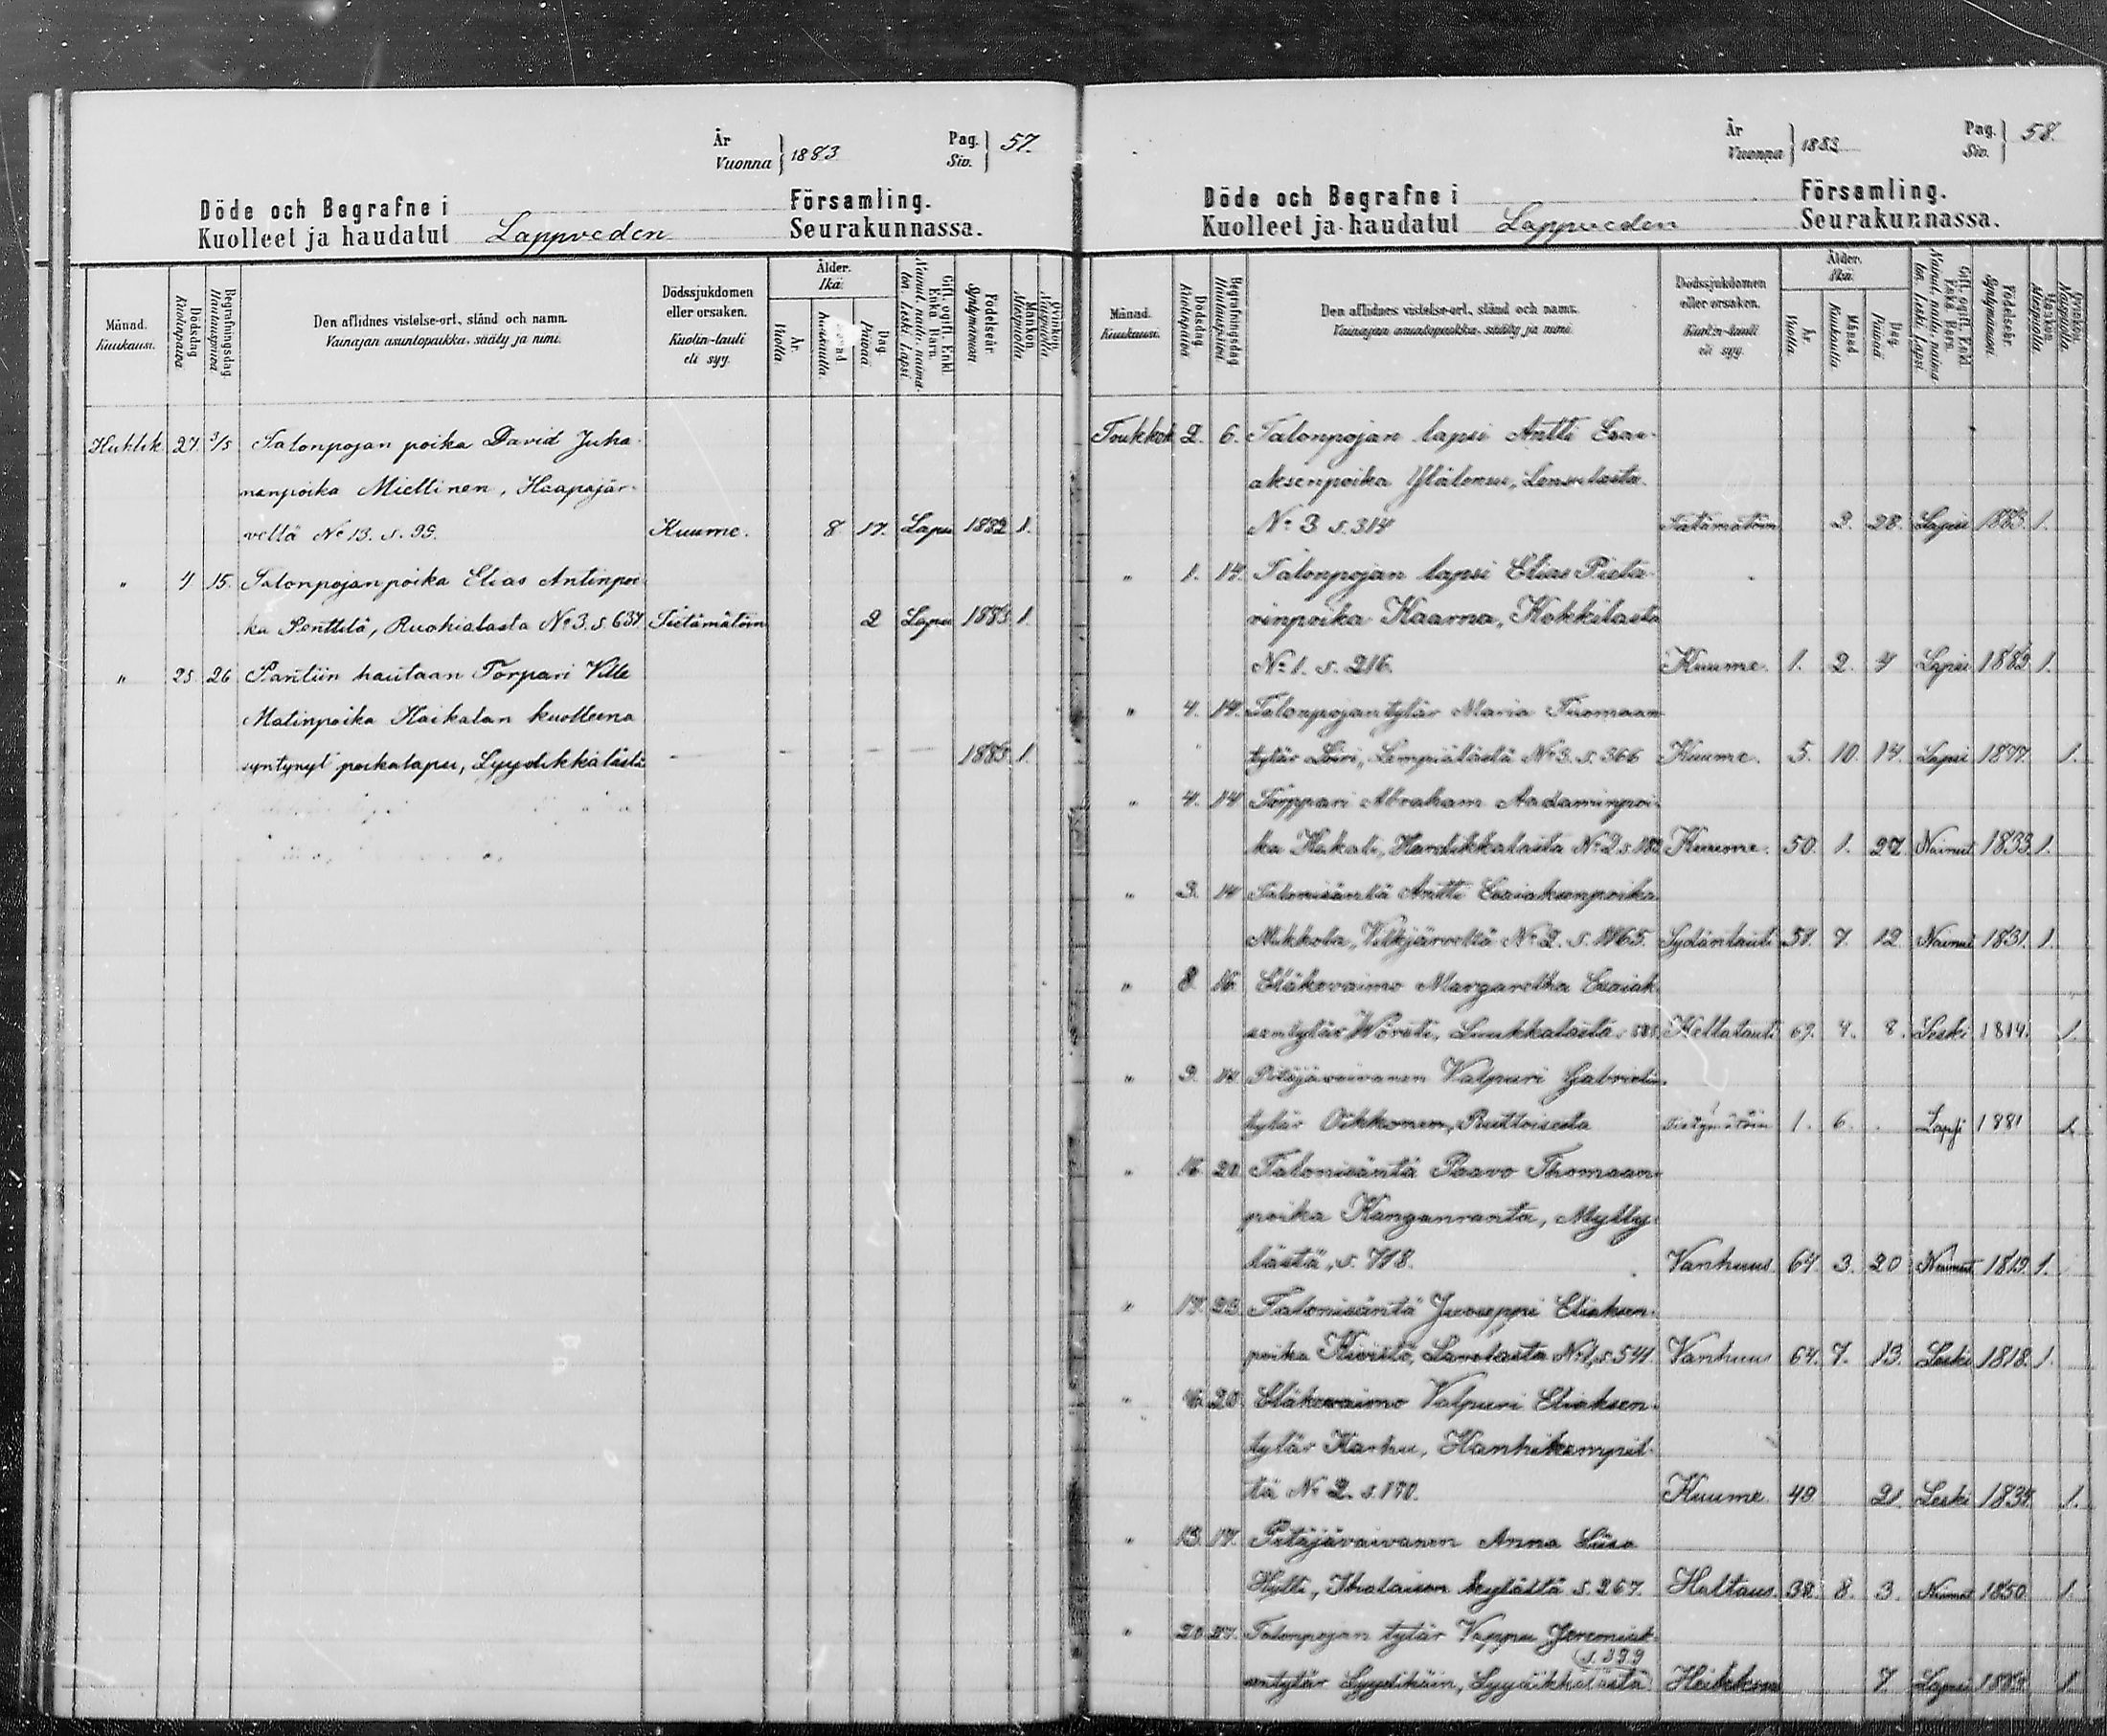 År
Vuonna } 1883
Pag.
Siv. } 57.
Döde och Begrafne i Församling.
Kuolleet ja haudatut Lappveden Seurakunnassa.
Månad. Kuukausi.
Dödsdag Kuolinpäivä
Begrafningsdag Hautauspäivä
Den aflidnes vistelse-ort, stånd och namn.
Vainajan asuntopaikka, sääty ja nimi.
Dödssjukdomen eller orsaken.
Kuolin-tauti eli syy.
Ålder. Ikä.
År. Vuotta
Kuukautta.
Dag. Päivää
Gift, ogift, Enkl. Enka, Barn.
Nainut, naimaton, leski, lapsi
Födelseår. Syntymävuosi.
Mankön. Miespuolia
Qvinkön. Naispuolia
Huhtik. 27. 3/5 Talonpojan poika David Juha-
nanpoika Miettinen, Haapajär-
veltä No 13. s. 99. Kuume. 8 17. Lapsi 1882 1.
" 4 15. Talonpojan poika Elias Antinpoi-
ka Ponttilä, Ruohialasta No 3. s. 637 Tietämätöin 2 Lapsi 1883 1.
" 25. 26 Pantiin hautaan Torpari Ville
Matinpoika Kaikalan kuolleena
syntynyt poikalapsi, Lyydikkälästä — — — — 1883. 1.
År
Vuonna } 1883
Pag.
Siv. } 58.
Döde och Begrafne i Församling.
Kuolleet ja haudatut Lappveden Seurakunnassa.
Månad. Kuukausi.
Dödsdag Kuolinpäivä
Begrafningsdag Hautauspäivä
Den aflidnes vistelse-ort, stånd och namn.
Vainajan asuntopaikka, sääty ja nimi.
Dödssjukdomen eller orsaken.
Kuolin-tauti eli syy.
Ålder. Ikä.
År. Vuotta
Månad Kuukautta
Dag. Päivää
Gift, ogift, Enkl. Enka, Barn.
Nainut, naimaton, leski, lapsi.
Födelseår. Syntymävuosi.
Mankön. Miespuolia.
Qvinkön. Naispuolia.
Toukkok. 2. 6. Talonpojan lapsi Antti Esai-
aksenpoika Ylälonsu, Lonsulasta
No 3 s. 314 Tietämätöin 2. 28. Lapsi 1883. 1.
" 1. 14. Talonpojan lapsi Elias Pieta-
rinpoika Kaarna, Kokkilasta
No 1. s. 216. Kuume. 1. 2. 4 Lapsi 1882. 1.
" 4. 14. Talonpojan tytär Maria Tuomaan-
tytär Loiri, Lempiälästä No 3. s. 366 Kuume. 5. 10. 14. Lapsi 1877. 1.
" 4. 14 Torppari Abraham Aadaminpoi-
ka Hakali, Hardikkalasta No 2 s. 182 Kuume. 50. 1. 27. Nainut 1833. 1.
" 3. 14 Talonisäntä Antti Esaiaksenpoika
Mikkola, Vilkjärveltä No 2. s. 1165. Sydäntauti 51. 7. 12. Nainut 1831. 1.
" 8. 16. Eläkevaimo Margaretha Esaiak-
sentytär Luukkalasta Hellatauti 69. 4. 8. Leski 1814. 1.
" 9. 14. Pitäjävaivanen Valpuri Gabrielin-
tytär Oikkonen, Ruttoisesta Tietämätöin 1. 6. Lapsi 1881 1.
" 16. 20. Talonisäntä Paavo Thomaan-
poika Kanganranta, Mylly-
lästä, s. 718. Vanhuus. 64. 3. 20 Nainut 1819. 1.
" 17. 23. Talonisäntä Jooseppi Eliaksen-
poika Kivistö, Lavolasta No 1, s. 541. Vanhuus 64. 7. 13. Leski 1818. 1.
" 16. 20. Eläkevaimo Valpuri Eliaksen-
tytär Karhu, Hanhikempil-
tä No 2. s. 170. Kuume 49 21 Leski 1834. 1.
" 13. 17. Pitäjävaivanen Anna Liisa
Hytti, Ihalaisen kylältä s. 267. Haltaus. 32. 8. 3. Nainut 1850 1.
" 20. 27. Talonpojan tytär Vappu Jeremiak-
s. 399
sentytär Lyydikäin, Lyydikkälästä Heikkous 7. Lapsi 1883. 1.